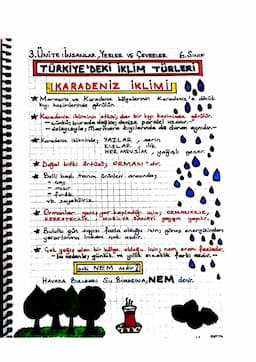 3. ÜNİTE: İNSANLAR, YERLER VE ÇEVRELER 6. SINIF
TÜRKİYE'DEKİ İKLİM TÜRLERİ
KARADENİZ İKLİMİ
★ Marmara ve Karadeniz bölgelerinin Karadeniz'e dönük
kıyı kesimlerinde görülür.
★ Karadeniz ikliminin etkisi, dar bir kıyı kesiminde görülür.
denize paralel
dolayısıyla; Marmara kıyılarında da
★ Karadeniz ikliminde; YAZLAR, serin
KIŞLAR, ılık
HER MEVSİM, yağışlı geçer.
★ Doğal bitki örtüsü; ORMAN'dır.
★ Belli başlı tarım ürünleri arasında;
- çay
- mısır
- fındık
★ Ormanlar geniş yer kapladığı için; ORMANCILIK,
KERESTECİLİK, MOBİLYA SANAYİ yaygın
★ Bulutlu gün sayısı fazla olduğu için; güneş enerjisinden
yararlanma
★ Çok yağış alan bir bölge olduğu için; nem oranı fazladır.
bu nedenle; günlük ve yıllık sıcaklık farkı azdır.
NEM nedir?
HAVADA BULUNAN SU BUHARINA, NEM denir.